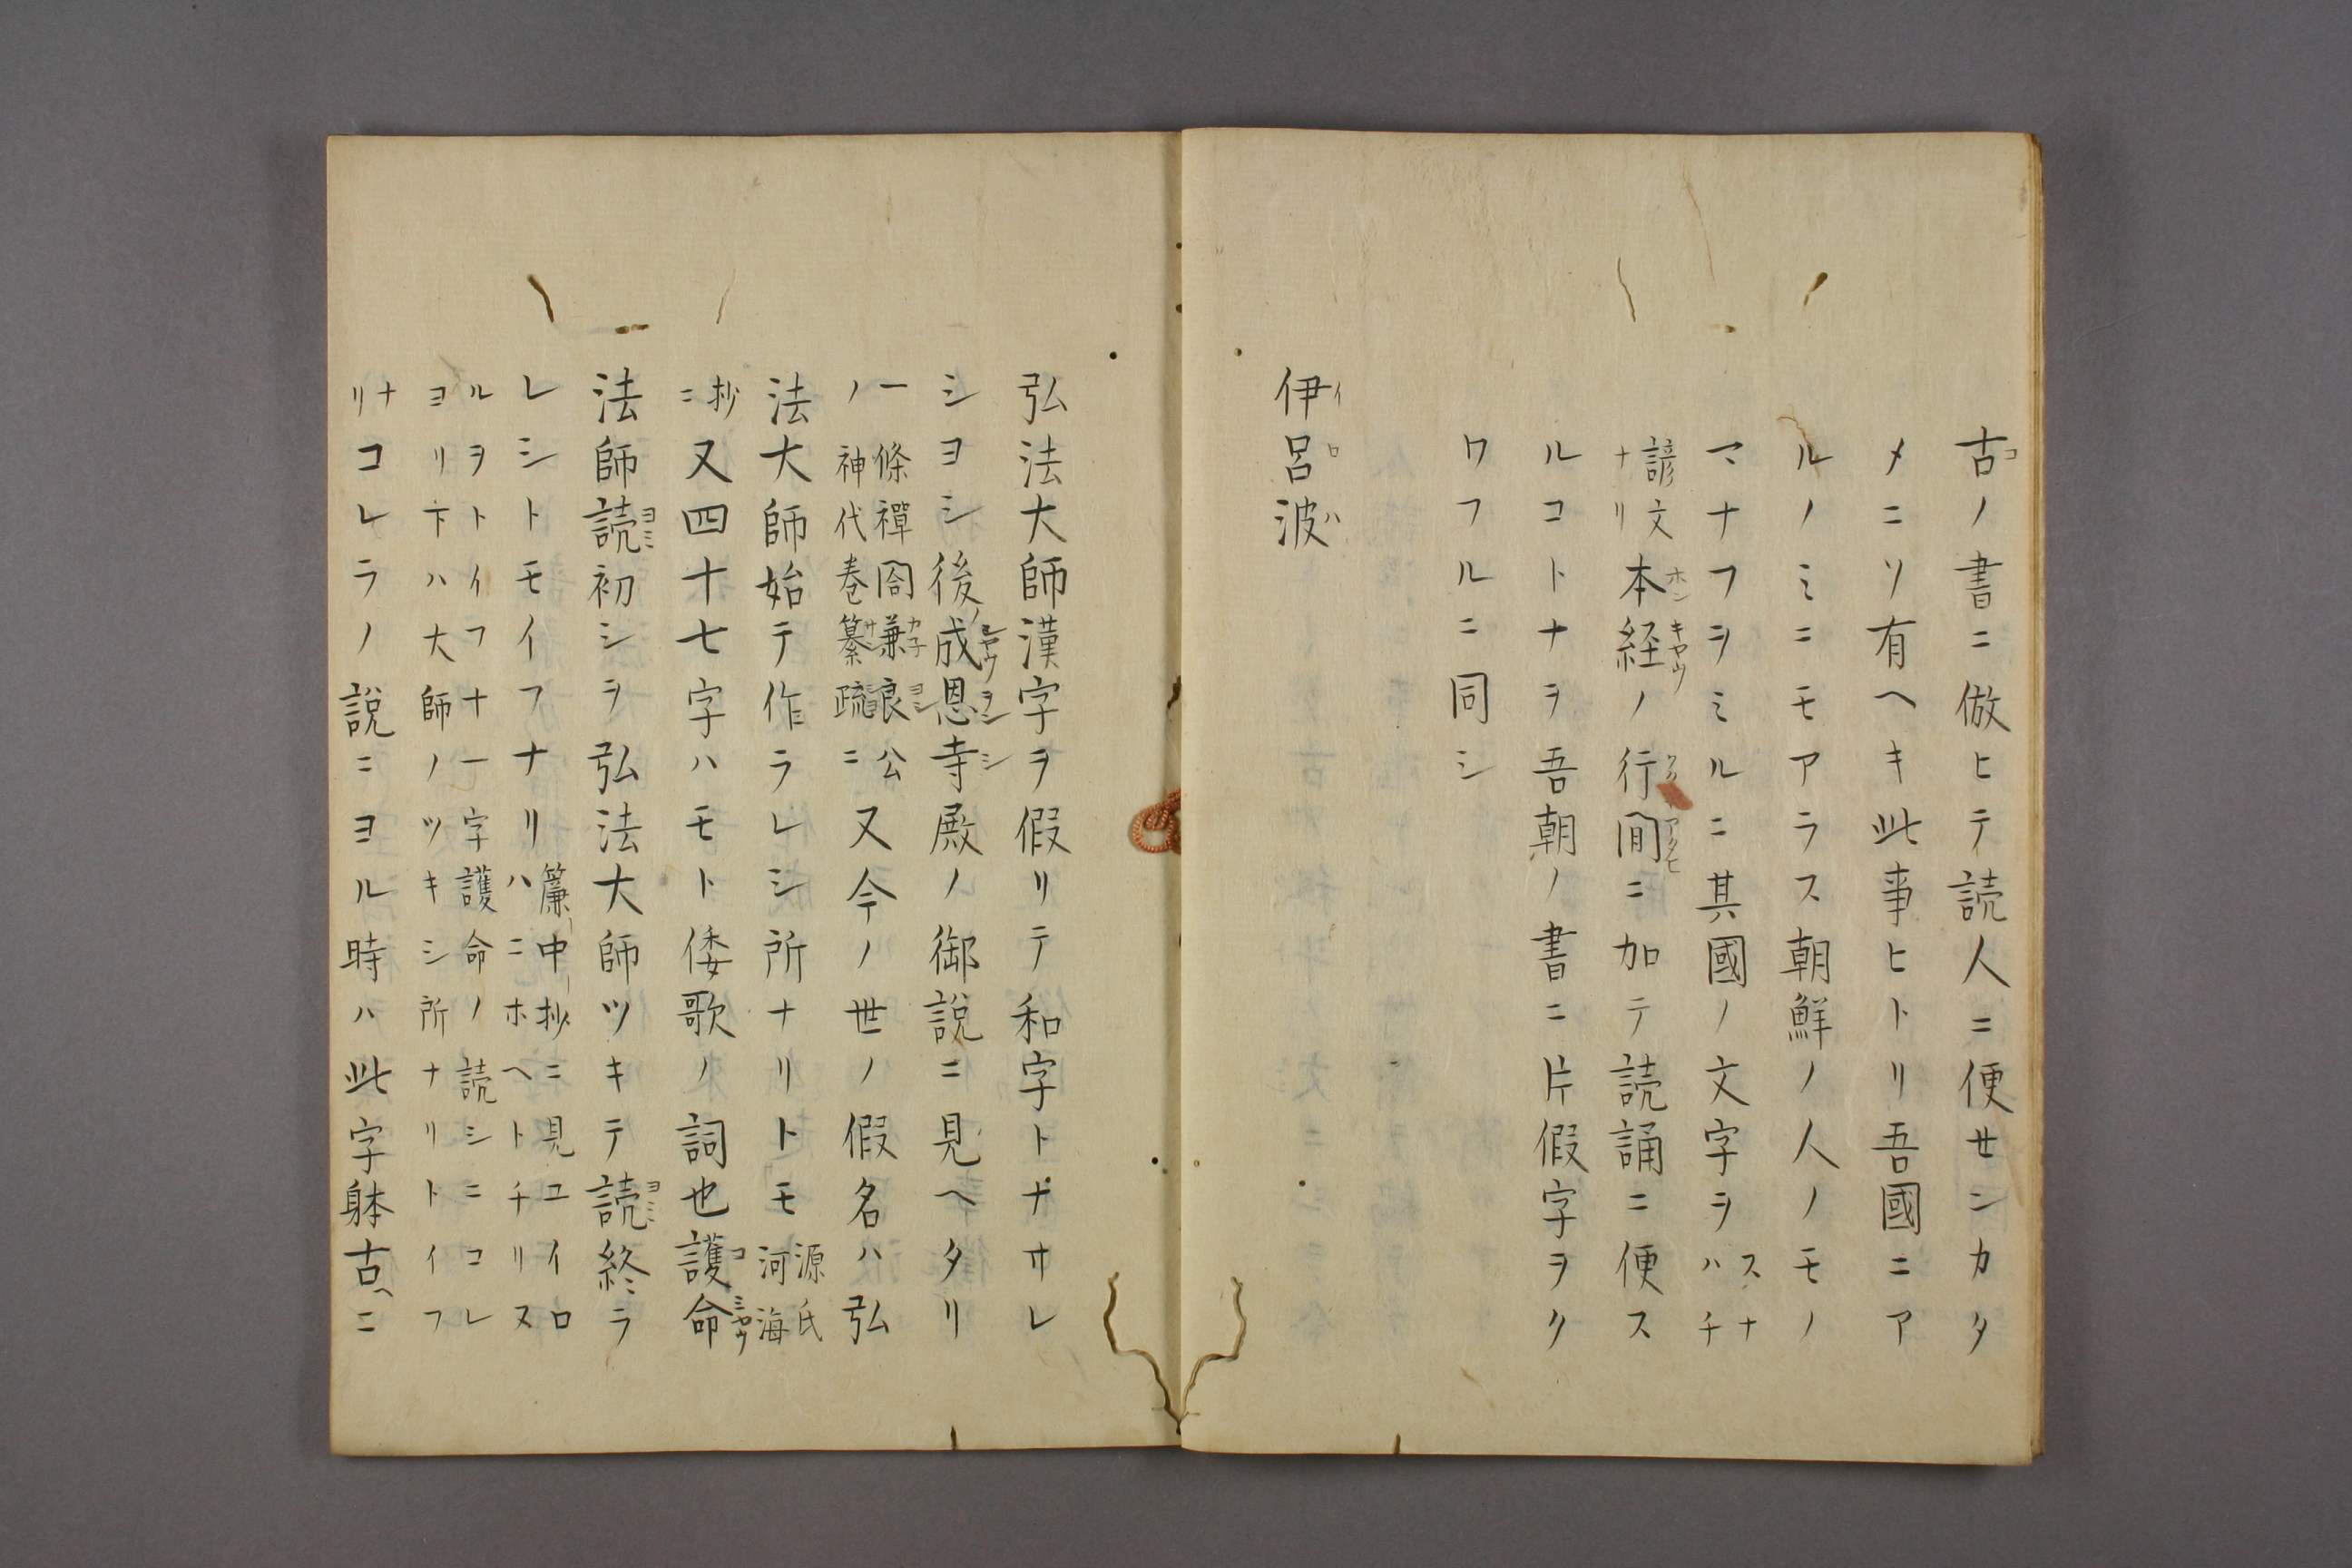 古ノ書ニ倣ヒテ読人ニ便センカタ
メニソ有ヘキ此事ヒトリ吾國ニア
ルノミニモアラス朝鮮ノ人ノモノ
マナフヲミルニ其國ノ文字ヲスナハチ
諺文ナリ本経ノ行間ニ加テ読誦ニ便ス
ルコトナヲ吾朝ノ書ニ片假字ヲク
ワフルニ同シ
伊呂波
弘法大師漢字ヲ假リテ和字トナサレ
シヨシ後成恩寺殿ノ御説ニ見ヘタリ
一條禪閤兼良公ノ神代巻纂疏ニ又今ノ世ノ假名ハ弘
法大師始テ作ラレシ所ナリトモ源氏河海
抄ニ又四十七字ハモト倭歌ノ詞也護命
法師読初シヲ弘法大師ツキテ読終ラ
レシトモイフナリ簾中抄ニ見ユイロハニホヘトチリヌ
ルヲトイフ十一字護命ノ読シニコレ
ヨリ下ハ大師ノツキシ所ナリトイフ
ナリコレラノ説ニヨル時ハ此字躰古ヘニ